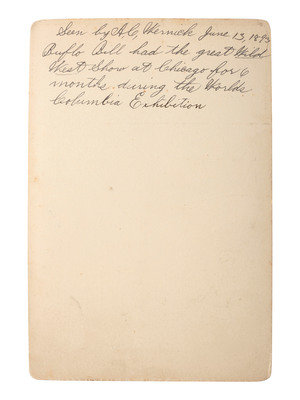 Seen by A.C. Wernick June 13, 1893
Buflo Bill had the great Wild
West Show at Chicago for 6
months during the Worlds
Columbia Exhibition